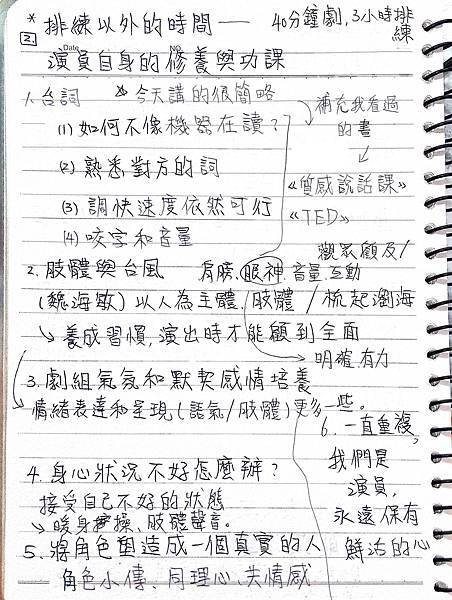 * 排練以外的時間——
40分鐘劇，3小時排練
2.
Date
No
演員自身的修養與功課
1. 台詞
☆今天講的很簡略
補充我看過的書
(1) 如何不像機器在讀？
(2) 熟悉對方的詞
《質感說話課》
(3) 調快速度依然可行
《TED》
(4) 咬字和音量
觀眾顧及/
2. 肢體與台風
肩膀、眼神 音量 互動
(魏海敏) 以人為主體、肢體 / 梳起瀏海
↘ 養成習慣，演出時才能顧到全面
明確、有力
3. 劇組氣氛和默契感情培養
情緒表達和呈現(語氣/肢體) 更多一些。
4. 身心狀況不好怎麼辦？
接受自己不好的狀態
↘ 暖身操、肢體聲音。
5. 將角色塑造成一個真實的人
角色小傳、同理心、共情感
6. 一直重複，
我們是
演員，
永遠保有
鮮活的心